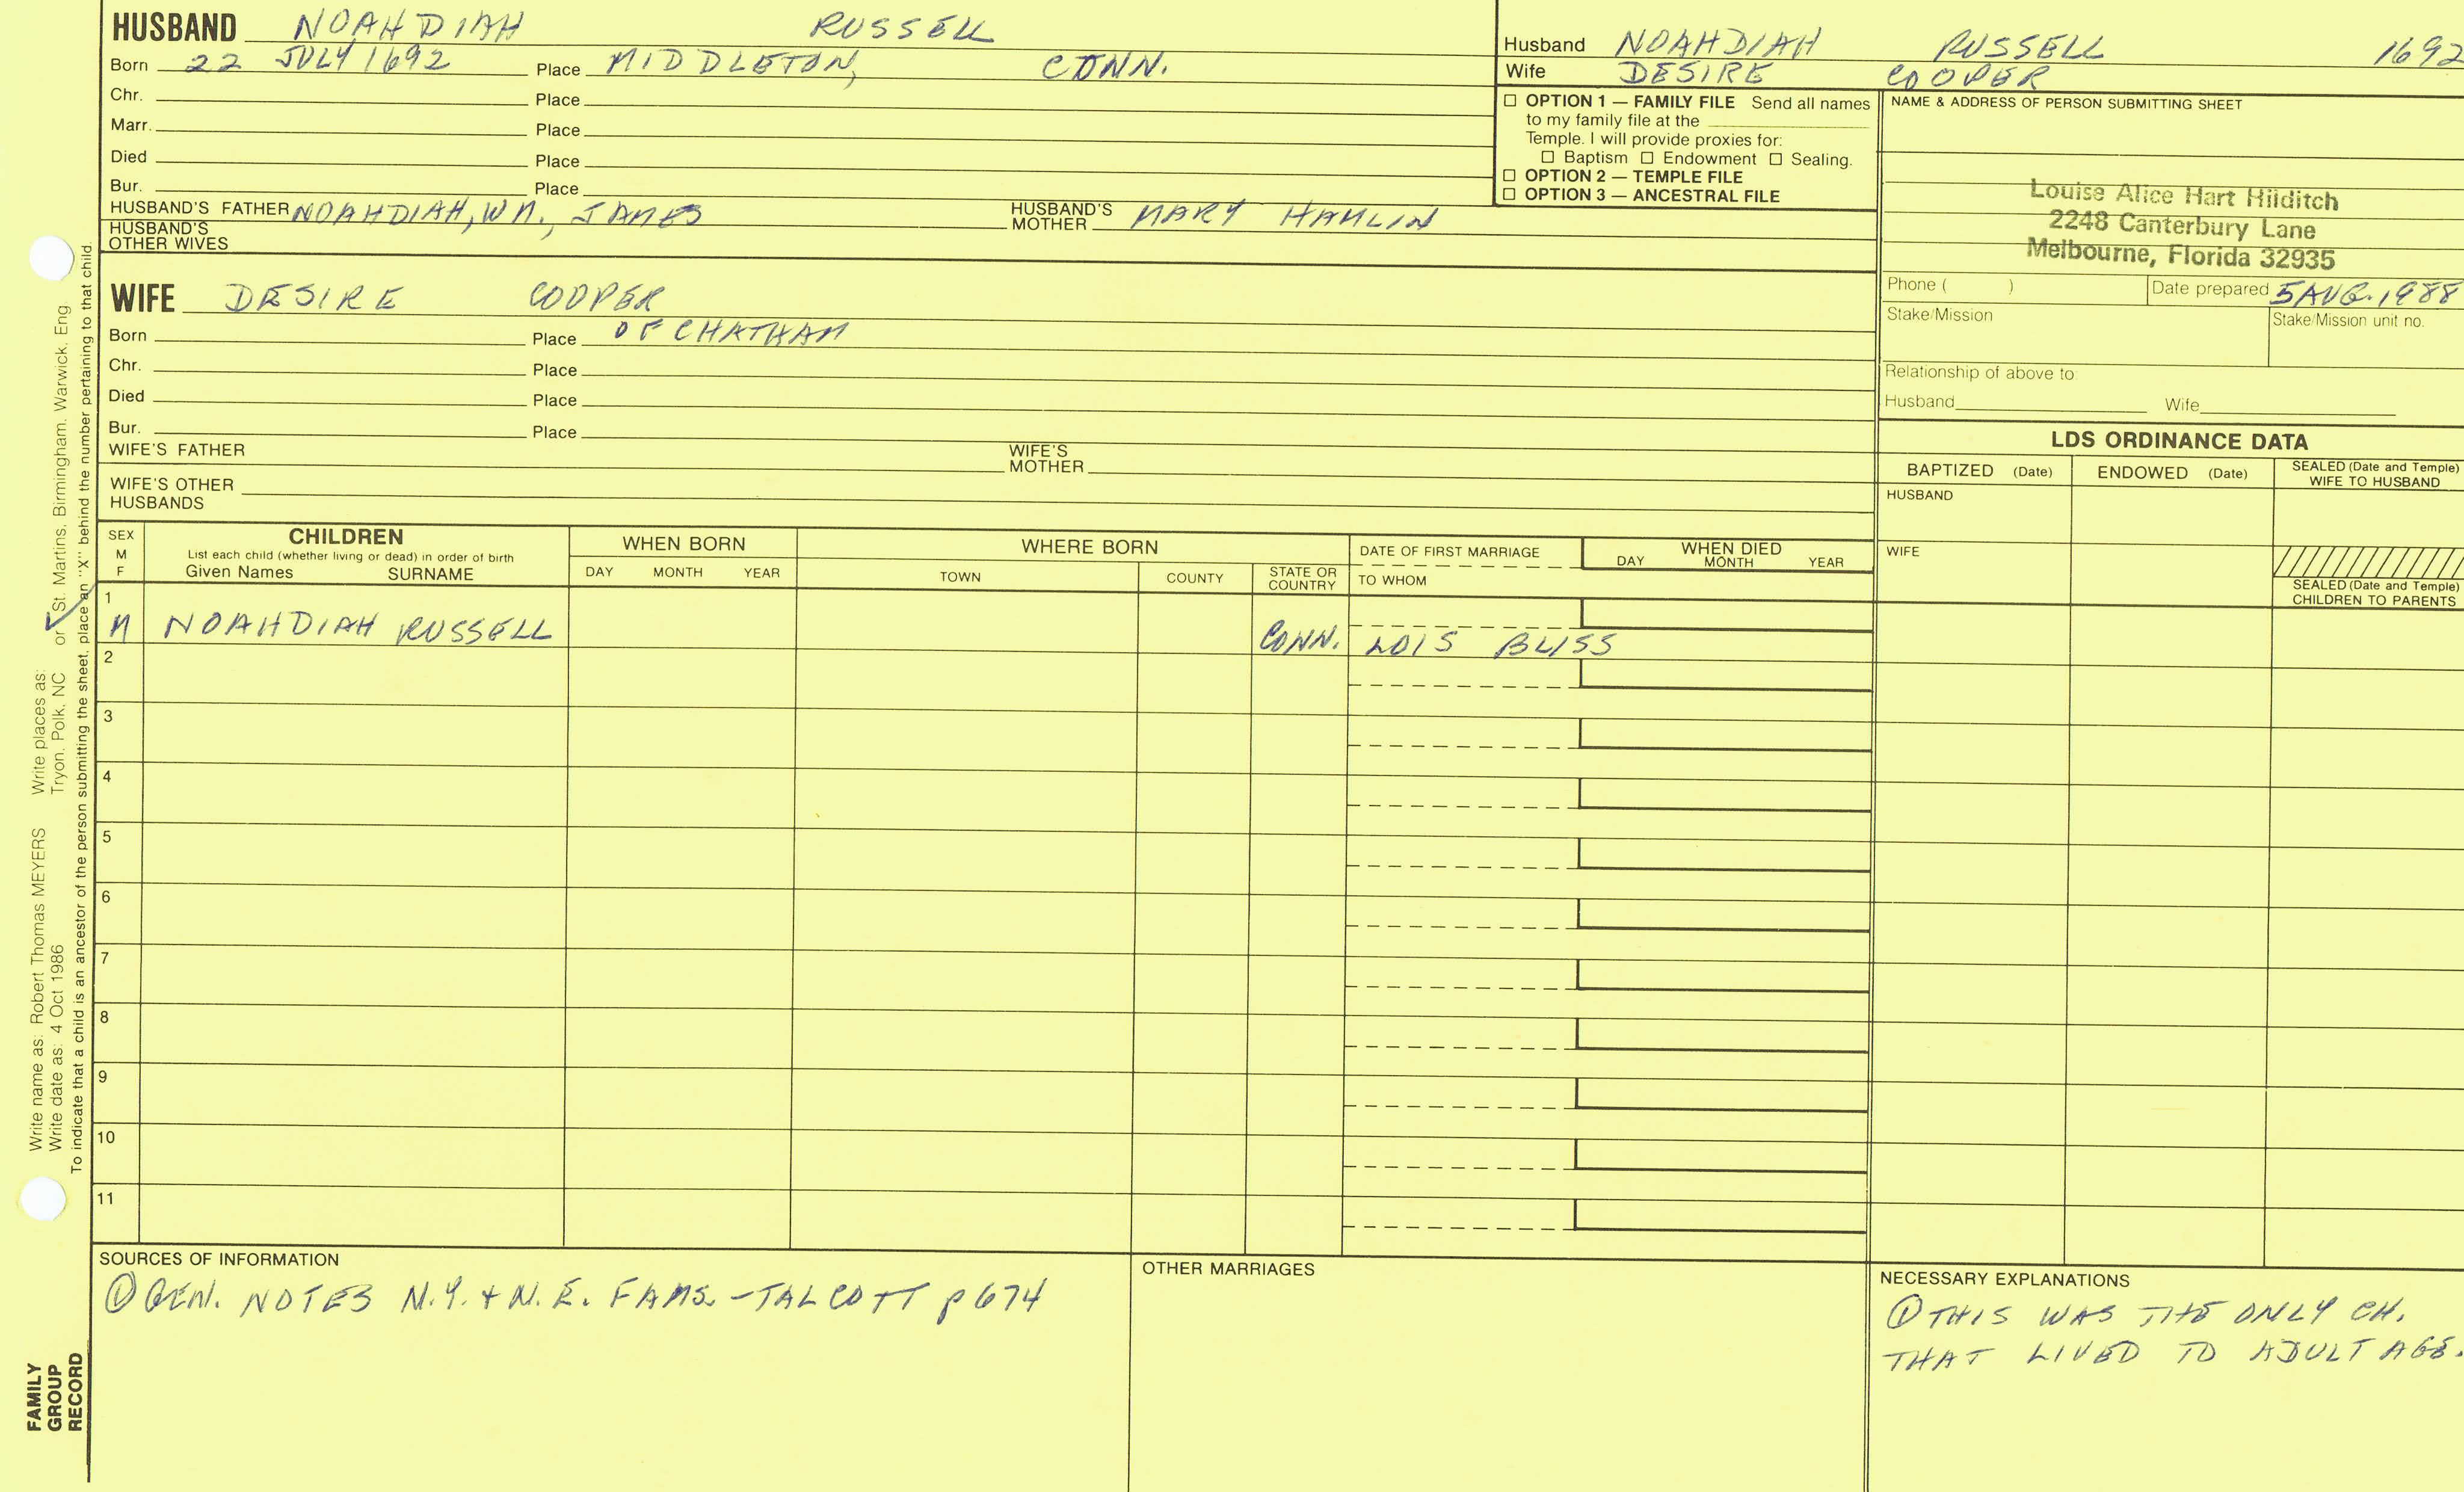 HUSBAND NOAHDIAH RUSSELL
Born 22 JULY 1692 Place MIDDLETON, CONN.
Chr. Place
Marr. Place
Died Place
Bur. Place
HUSBAND'S FATHER NOAHDIAH, WM., JAMES HUSBAND'S MOTHER MARY HAMLIN
HUSBAND'S OTHER WIVES
Husband NOAHDIAH RUSSELL 1692
Wife DESIRE COOPER
☐ OPTION 1 — FAMILY FILE Send all names
to my family file at the
Temple. I will provide proxies for:
☐ Baptism ☐ Endowment ☐ Sealing.
☐ OPTION 2 — TEMPLE FILE
☐ OPTION 3 — ANCESTRAL FILE
NAME & ADDRESS OF PERSON SUBMITTING SHEET
Louise Alice Hart Hilditch
2248 Canterbury Lane
Melbourne, Florida 32935
Phone ( ) Date prepared 5 AUG. 1988
Stake/Mission Stake/Mission unit no.
Relationship of above to:
Husband Wife
WIFE DESIRE COOPER
Born Place OF CHATHAM
Chr. Place
Died Place
Bur. Place
WIFE'S FATHER WIFE'S MOTHER
WIFE'S OTHER HUSBANDS
LDS ORDINANCE DATA
BAPTIZED (Date) ENDOWED (Date) SEALED (Date and Temple) WIFE TO HUSBAND
HUSBAND
WIFE
SEALED (Date and Temple) CHILDREN TO PARENTS
SEX M F
CHILDREN
List each child (whether living or dead) in order of birth
Given Names SURNAME
WHEN BORN
DAY MONTH YEAR
WHERE BORN
TOWN COUNTY STATE OR COUNTRY
DATE OF FIRST MARRIAGE
TO WHOM
WHEN DIED
DAY MONTH YEAR
1
M NOAHDIAH RUSSELL CONN. LOIS BLISS
2
3
4
5
6
7
8
9
10
11
SOURCES OF INFORMATION
① GEN. NOTES N.Y. + N.E. FAMS. - TALCOTT p 674
OTHER MARRIAGES
NECESSARY EXPLANATIONS
① THIS WAS THE ONLY CH.
THAT LIVED TO ADULT AGE.
Write name as: Robert Thomas MEYERS Write places as:
Write date as: 4 Oct 1986 Tryon, Polk, NC or St. Martins, Birmingham, Warwick, Eng
To indicate that a child is an ancestor of the person submitting the sheet, place an "X" behind the number pertaining to that child.
FAMILY
GROUP
RECORD